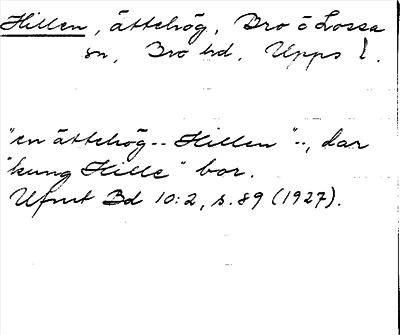 Hillen, ättehög, Bro o Lossa
sn, Bro hd, Upps l.
"en ättehög -- Hillen" --, dar
"kung Hille" bor.
Ufmt Bd 10:2, s. 89 (1927).